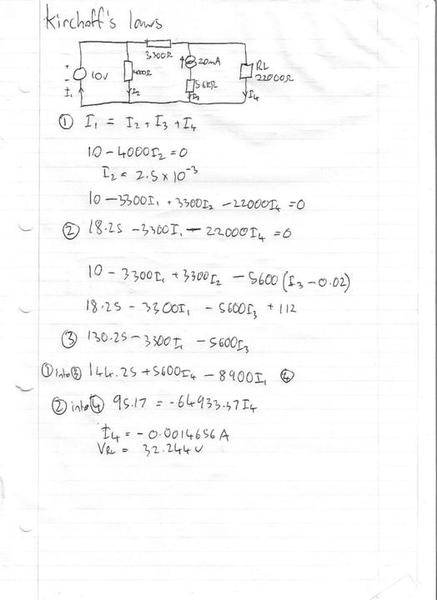 Kirchoff's laws
3300Ω
20mA
RL
22000Ω
+
-
10V
400Ω
5.6KΩ
I1
I2
I3
I4
① I1 = I2 + I3 + I4
10 - 4000I2 = 0
I2 = 2.5 x 10^-3
10 - 3300I1 + 3300I2 - 22000I4 = 0
② 18.25 - 3300I1 - 22000I4 = 0
10 - 3300I1 + 3300I2 - 5600(I3 - 0.02)
18.25 - 3300I1 - 5600I3 + 112
③ 130.25 - 3300I1 - 5600I3
① into ③ 144.25 + 5600I4 - 8900I1 ④
② into ④ 95.17 = -64933.37I4
I4 = -0.0014656A
VRL = 32.244V